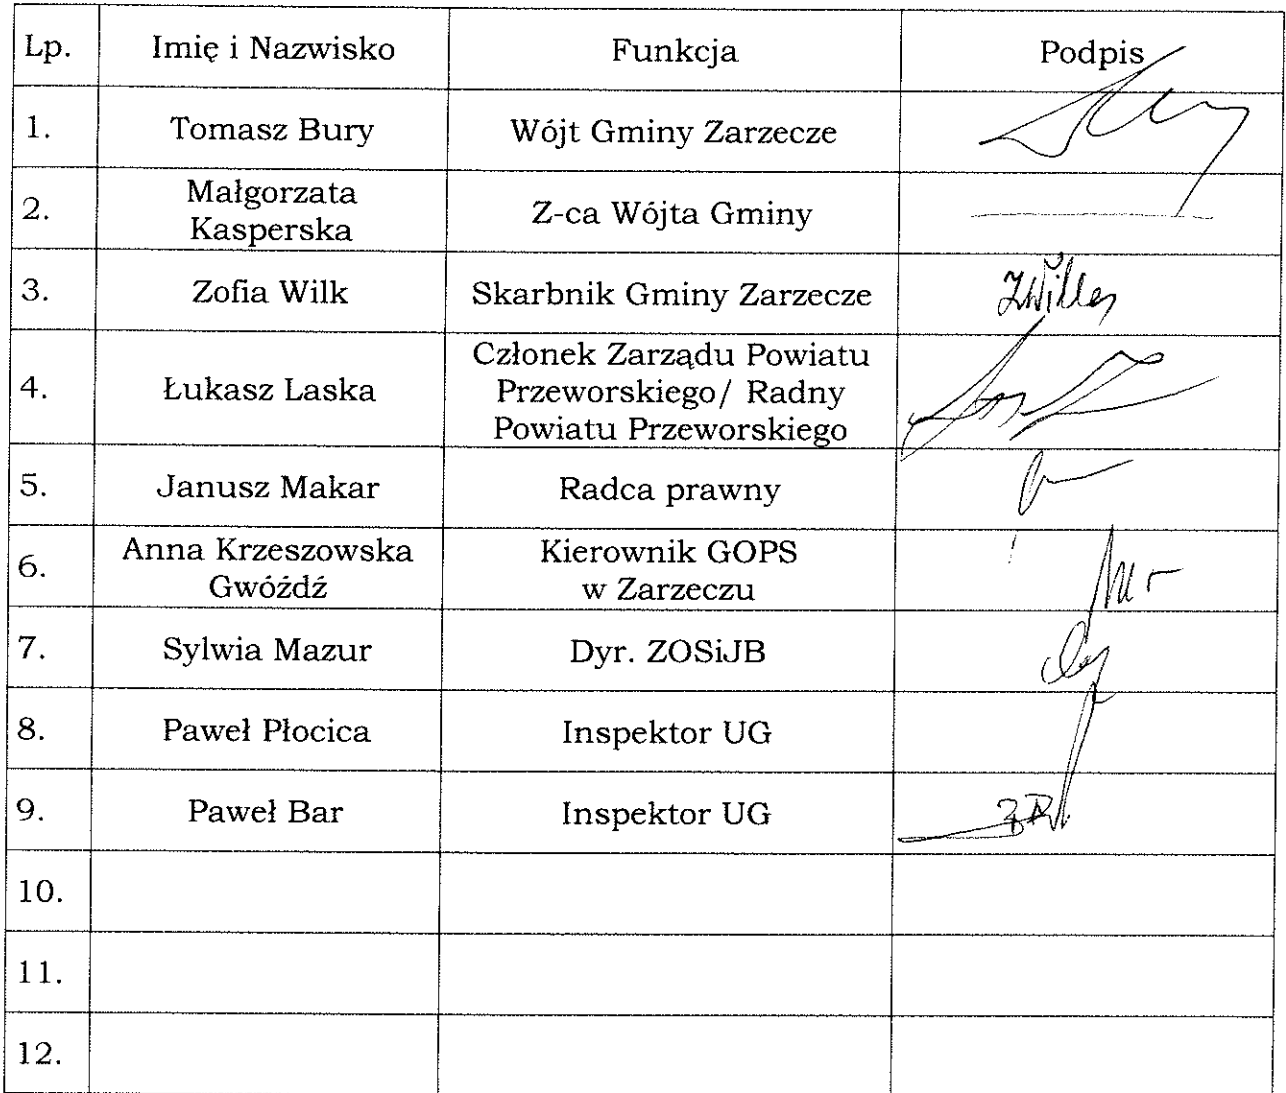 Lp. Imię i Nazwisko Funkcja Podpis
1. Tomasz Bury Wójt Gminy Zarzecze
2. Małgorzata Kasperska Z-ca Wójta Gminy
3. Zofia Wilk Skarbnik Gminy Zarzecze
4. Łukasz Laska Członek Zarządu Powiatu
Przeworskiego/ Radny
Powiatu Przeworskiego
5. Janusz Makar Radca prawny
6. Anna Krzeszowska Gwóźdź Kierownik GOPS
w Zarzeczu
7. Sylwia Mazur Dyr. ZOSiJB
8. Paweł Płocica Inspektor UG
9. Paweł Bar Inspektor UG
10.
11.
12.